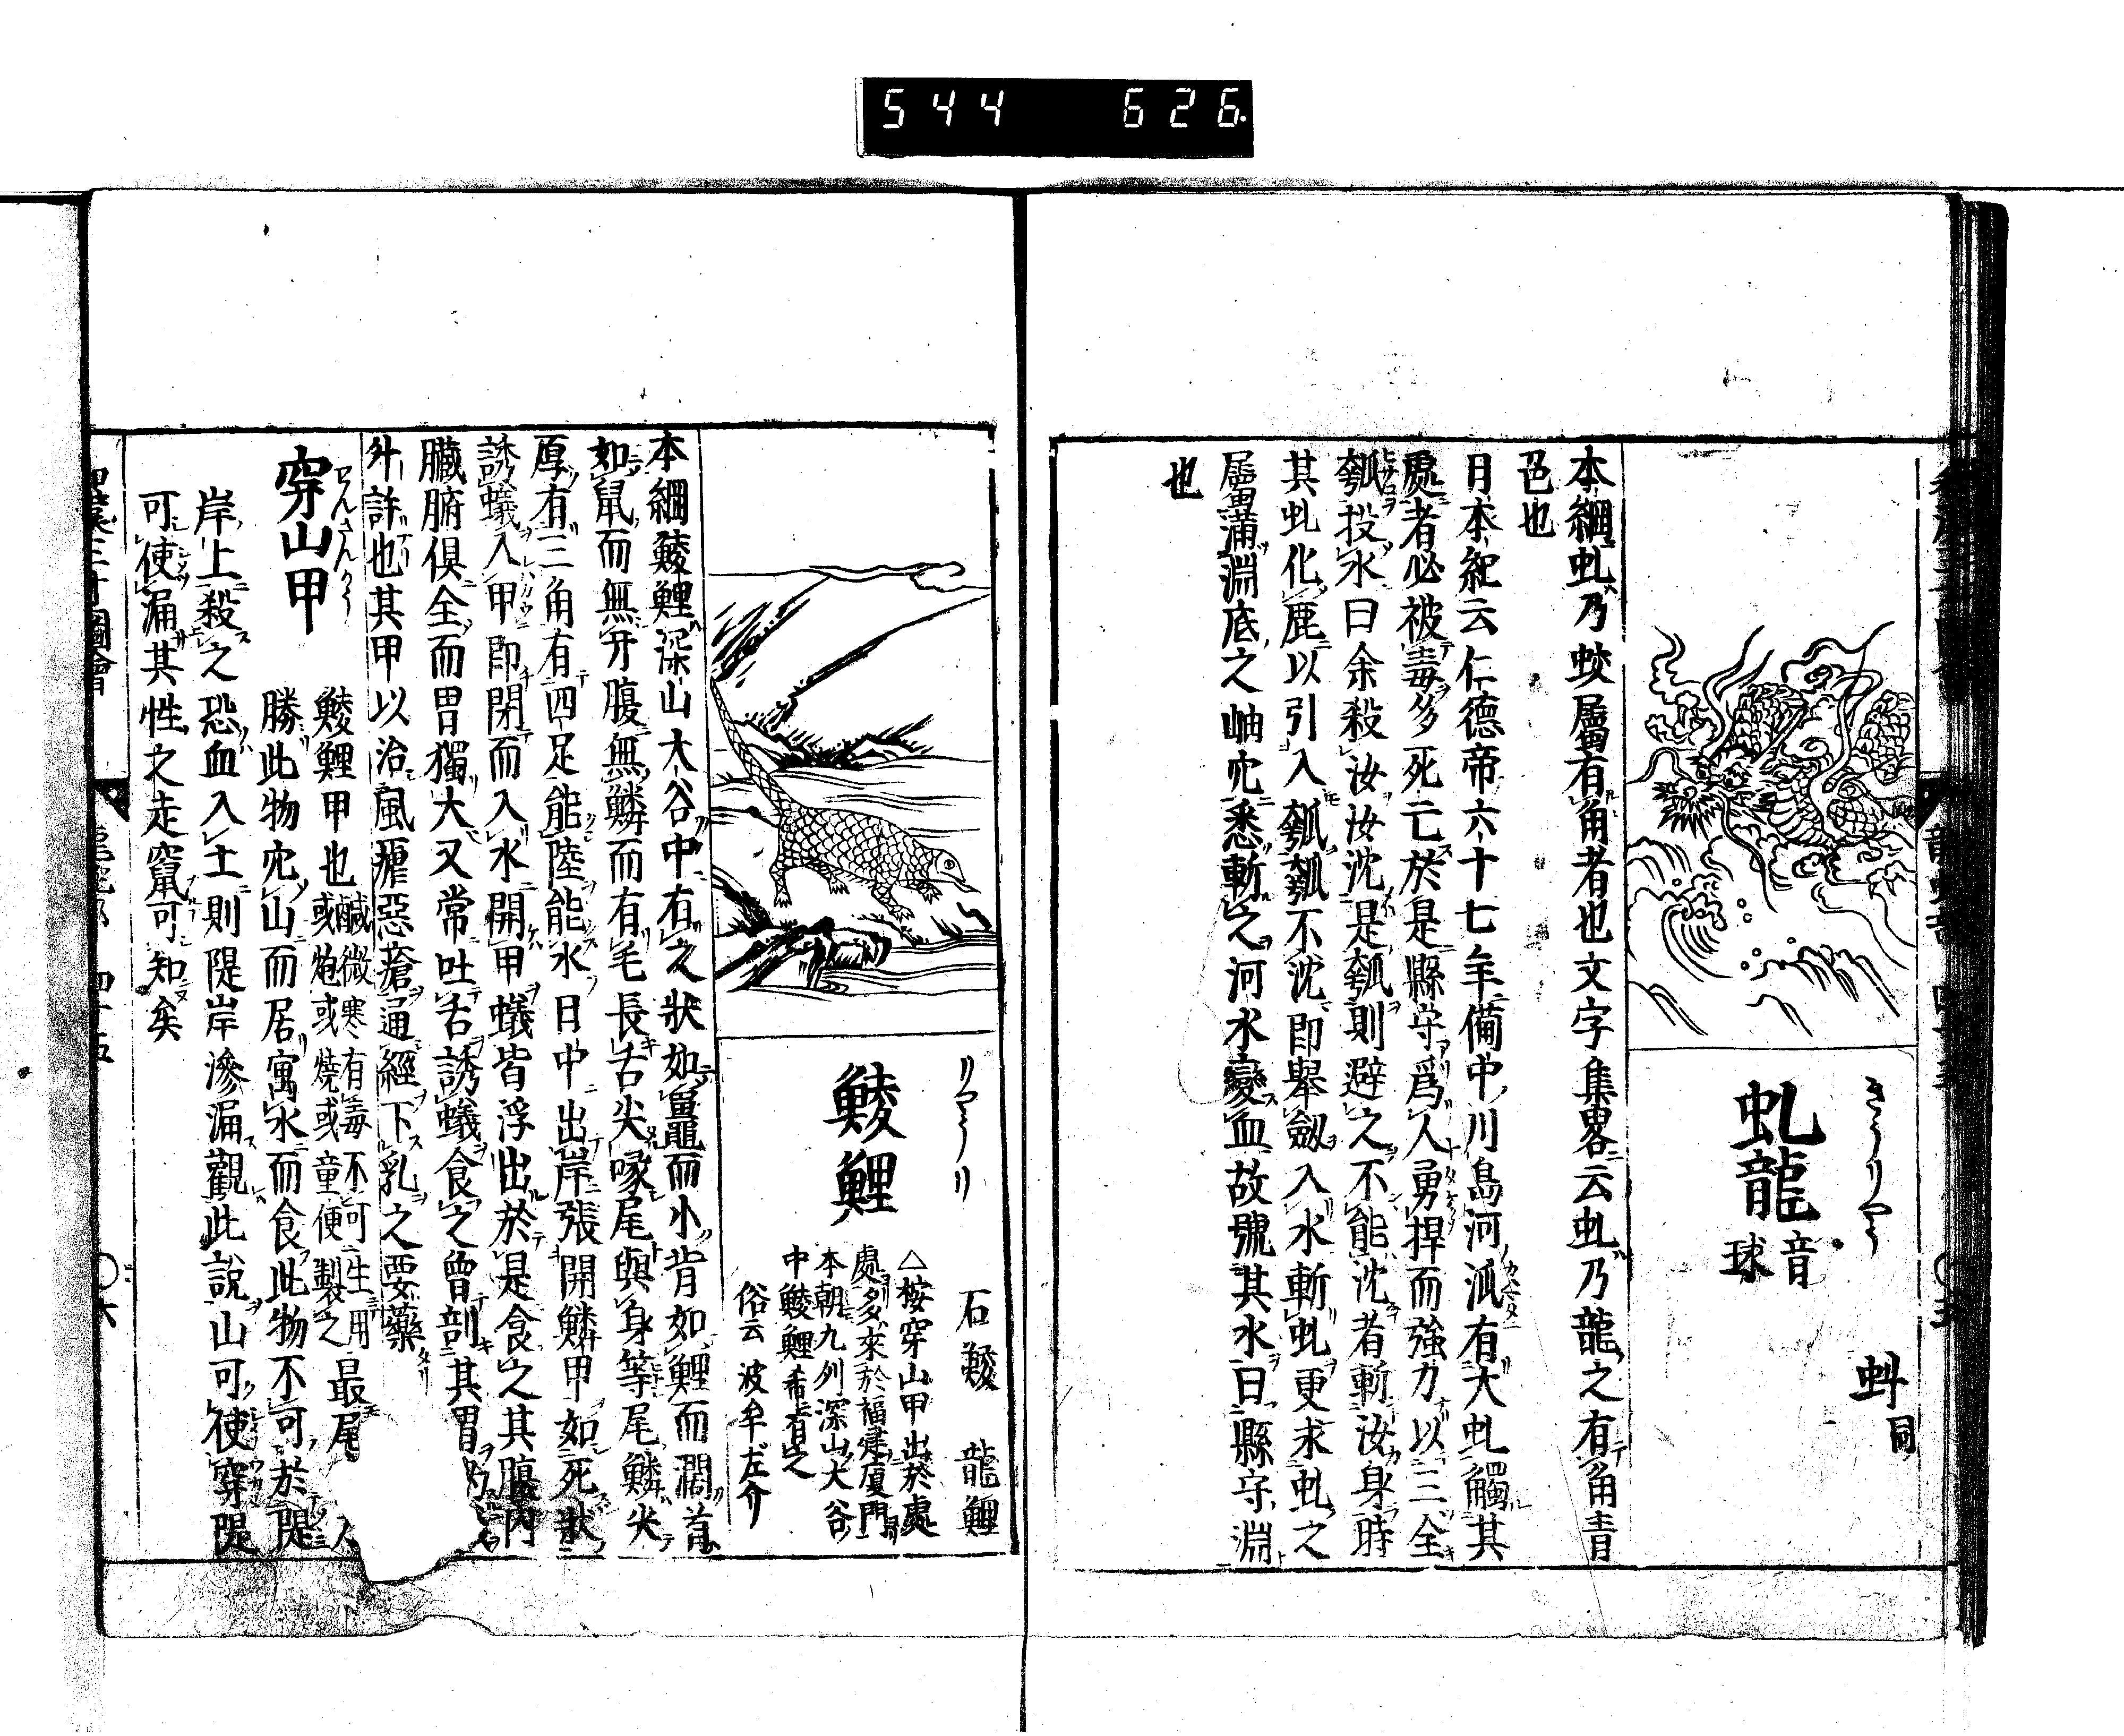 544 626
きうりやう
虬龍
音
球
虯同
本綱虬乃蛟屬有角者也文字集畧云虬乃龍之有角青
色也
日本紀云仁德帝六十七年備中川島河派有大虬觸其
處者必被毒多死亡於是縣守爲人勇捍而強力以三全
瓠投水曰余殺汝汝沈是瓠則避之不能沈者斬汝身時
其虬化鹿以引入瓠瓠不沈即舉劔入水斬虬更求虬之
屬滿淵底之岫穴悉斬之河水變血故號其水曰縣守淵
也
りやうり
鯪鯉
石鯪 龍鯉
△按穿山甲出於處
處多來於福建厦門
本朝九列深山大谷
中鯪鯉希有之
俗云波牟左介
本綱鯪鯉深山大谷中有之狀如鼉而小背如鯉而濶首
如鼠而無牙腹無鱗而有毛長舌尖喙尾與身等尾鱗尖
厚有三角有四足能陸能水日中出岸張開鱗甲如死狀
誘蟻入甲即閉而入水開甲蟻皆浮出於是食之其腹内
臟腑俱全而胃獨大又常吐舌誘蟻食之曾剖其胃約
升許也其甲以治風瘧惡瘡通經下乳之要藥
穿山甲
せんさんかう
鯪鯉甲也
鹹微寒有毒不可生用
或炮或燒或童便製之
最尾
勝此物穴山而居寓水而食此物不可於隄
岸上殺之恐血入土則隄岸滲漏觀此說山可使穿隄
可使漏其性之走竄可知矣